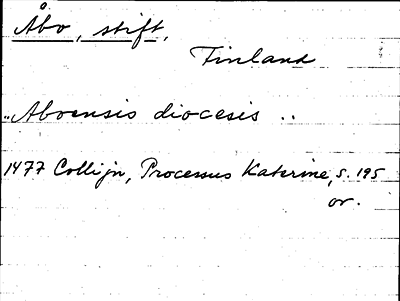 Åbo, stift,
Finland
"Aboensis diocesis ..
1477 Collijn, Processus Katerine, s. 195
or.